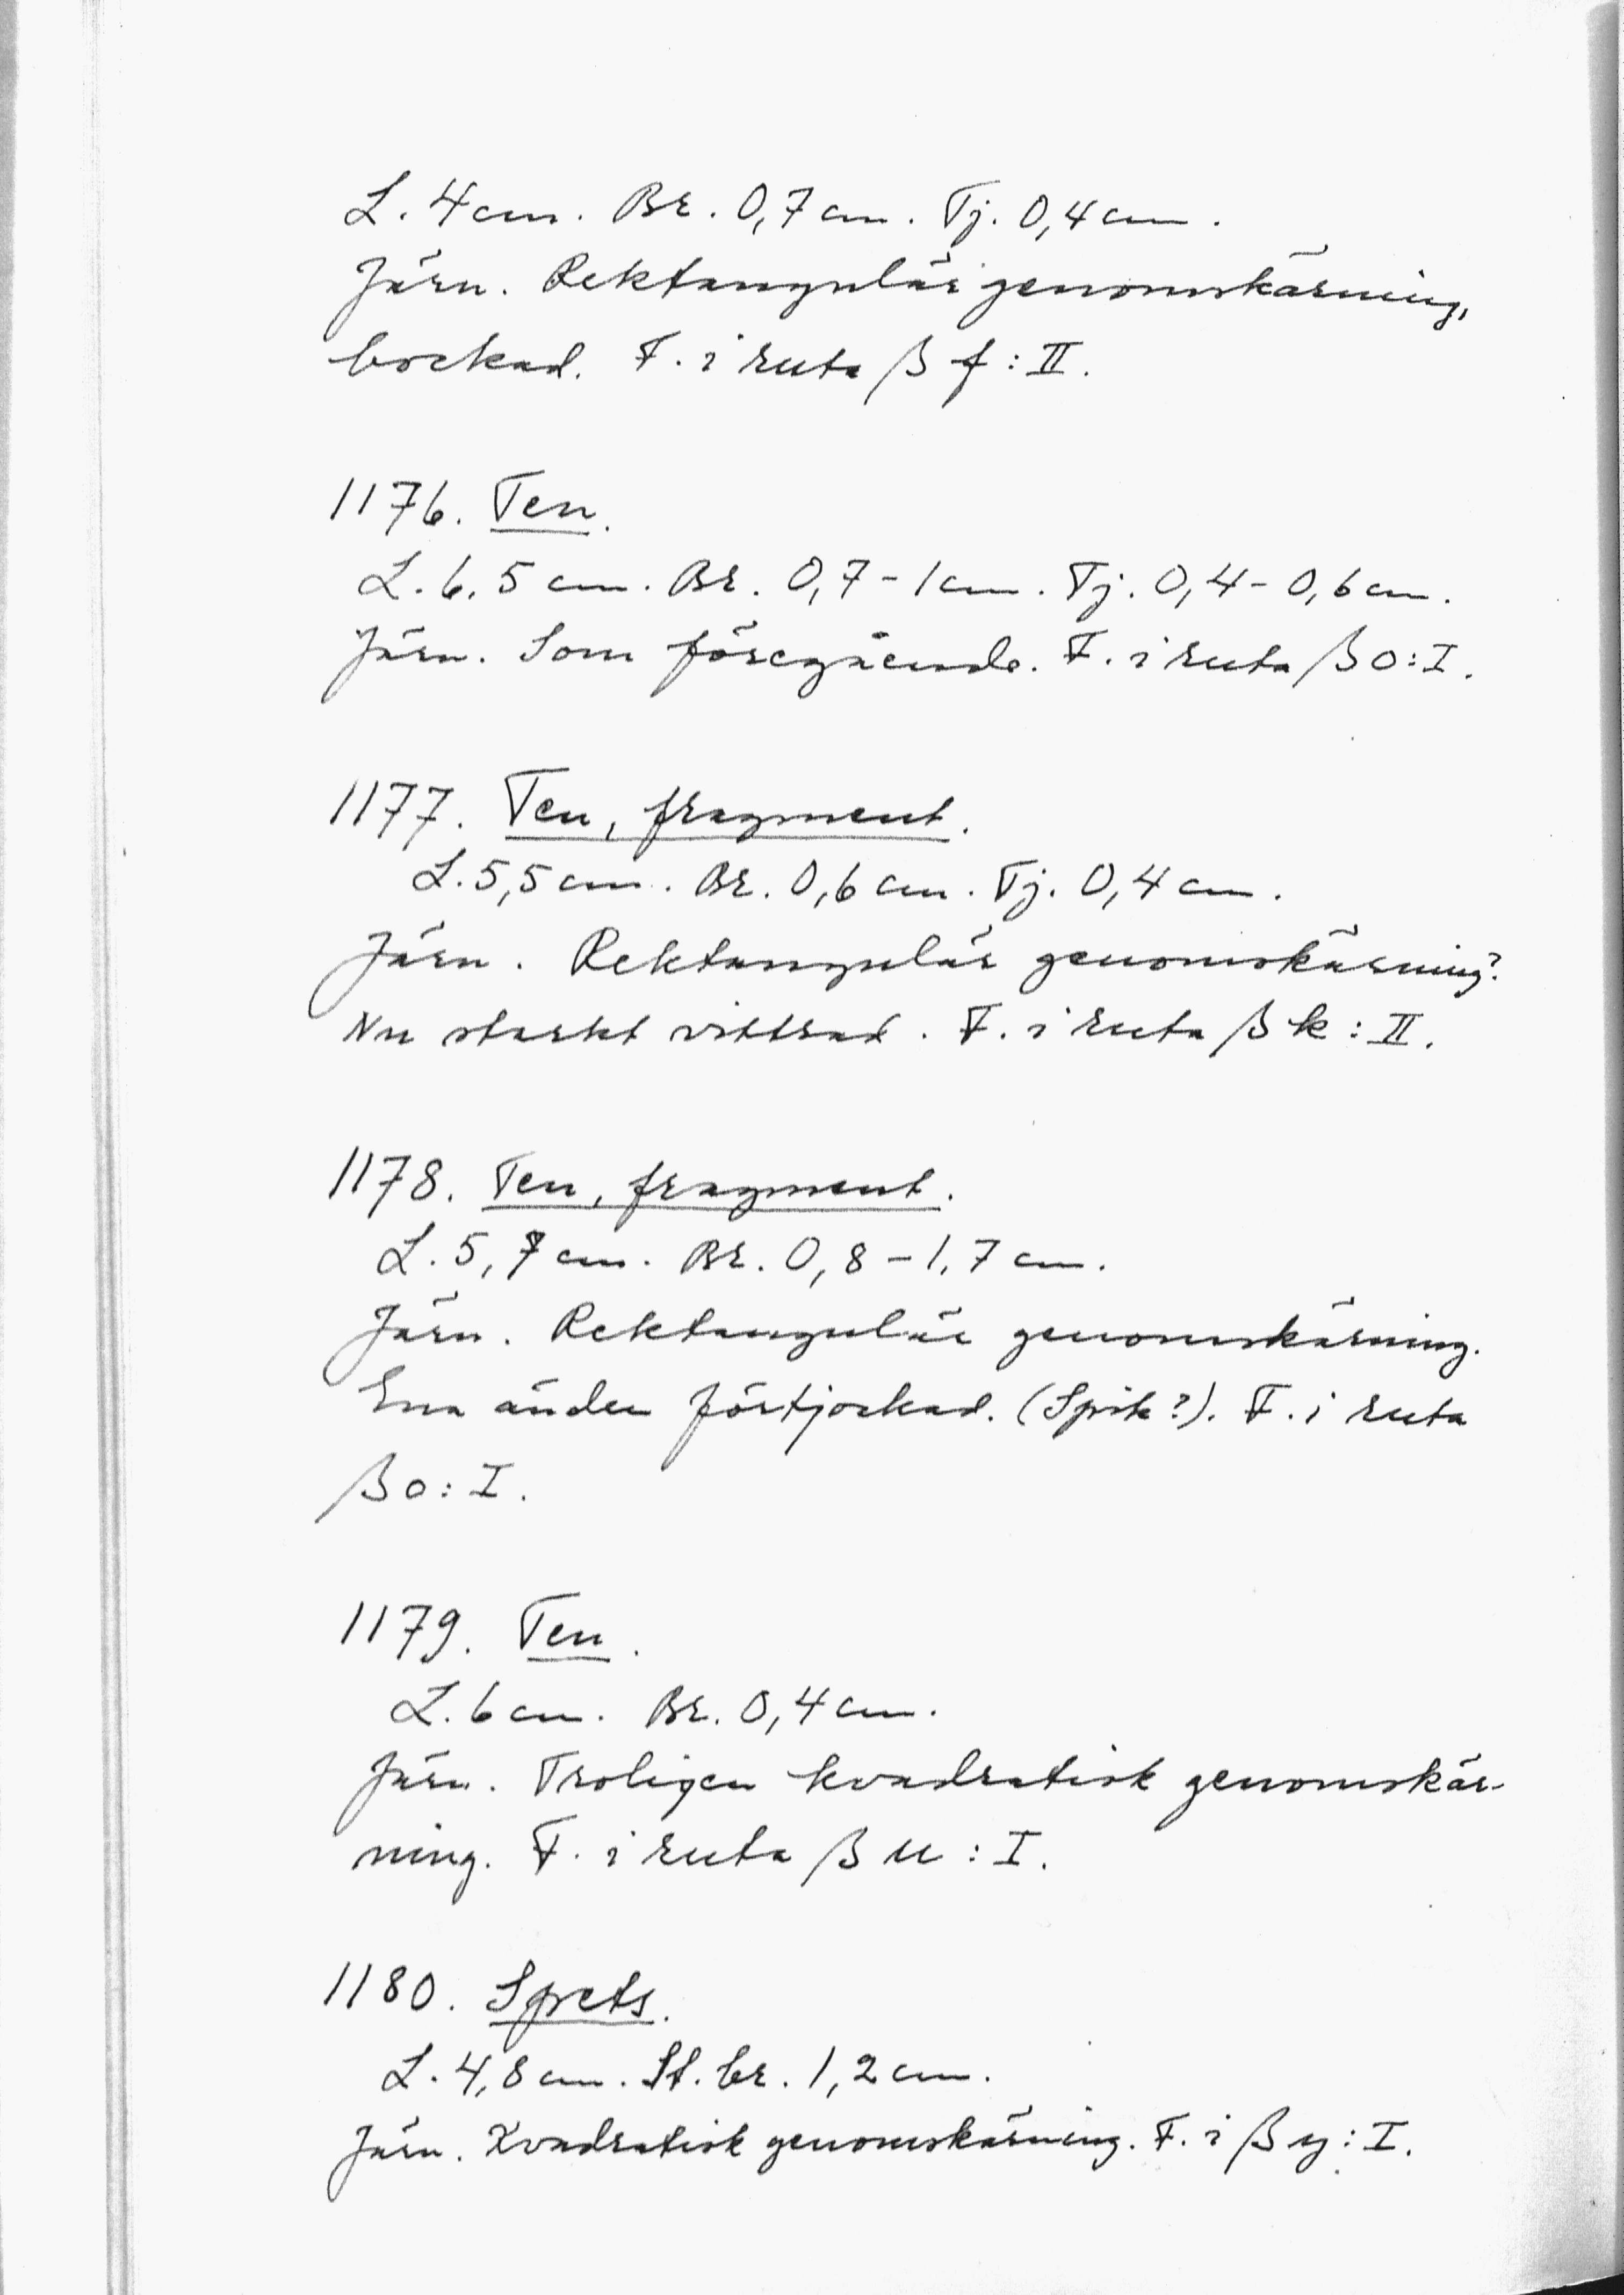 L. 4 cm. Br. 0,7 cm. Tj. 0,4 cm.
Järn. Rektangulär genomskärning,
bockad. F. i ruta β f : II.
1176. Ten.
L. 6,5 cm. Br. 0,7 - 1 cm. Tj. 0,4 - 0,6 cm.
Järn. Som föregående. F. i ruta β o : I.
1177. Ten, fragment.
L. 5,5 cm. Br. 0,6 cm. Tj. 0,4 cm.
Järn. Rektangulär genomskärning?
Nu starkt vittrad. F. i ruta β k : II.
1178. Ten, fragment.
L. 5,7 cm. Br. 0,8 - 1,7 cm.
Järn. Rektangulär genomskärning.
Ena änden förtjockad. (Spik?). F. i ruta
β o : I.
1179. Ten.
L. 6 cm. Br. 0,4 cm.
Järn. Troligen kvadratisk genomskär-
ning. F. i ruta β u : I.
1180. Spets.
L. 4,8 cm. St. br. 1,2 cm.
Järn. Kvadratisk genomskärning. F. i β y : I.